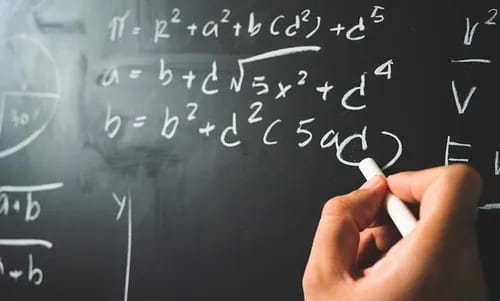 π = R² + a² + b(d²) + d⁵
a = b + d√5x² + d⁴
b = b² + d²(5ad)
r²
V
E
30°
a·b
a+b
y